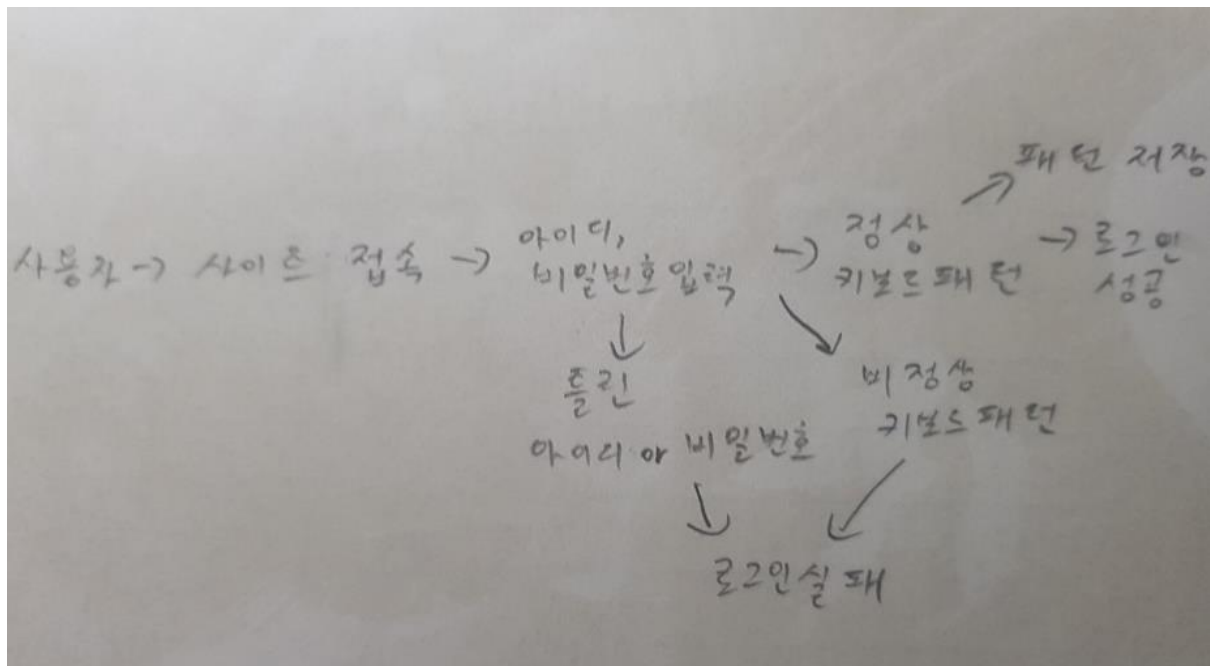 패턴 저장
사용자 → 사이트 접속 → 아이디,
비밀번호입력
→ 정상
키보드패턴
→ 로그인
성공
틀린
아이디 or 비밀번호
비정상
키보드패턴
로그인실패